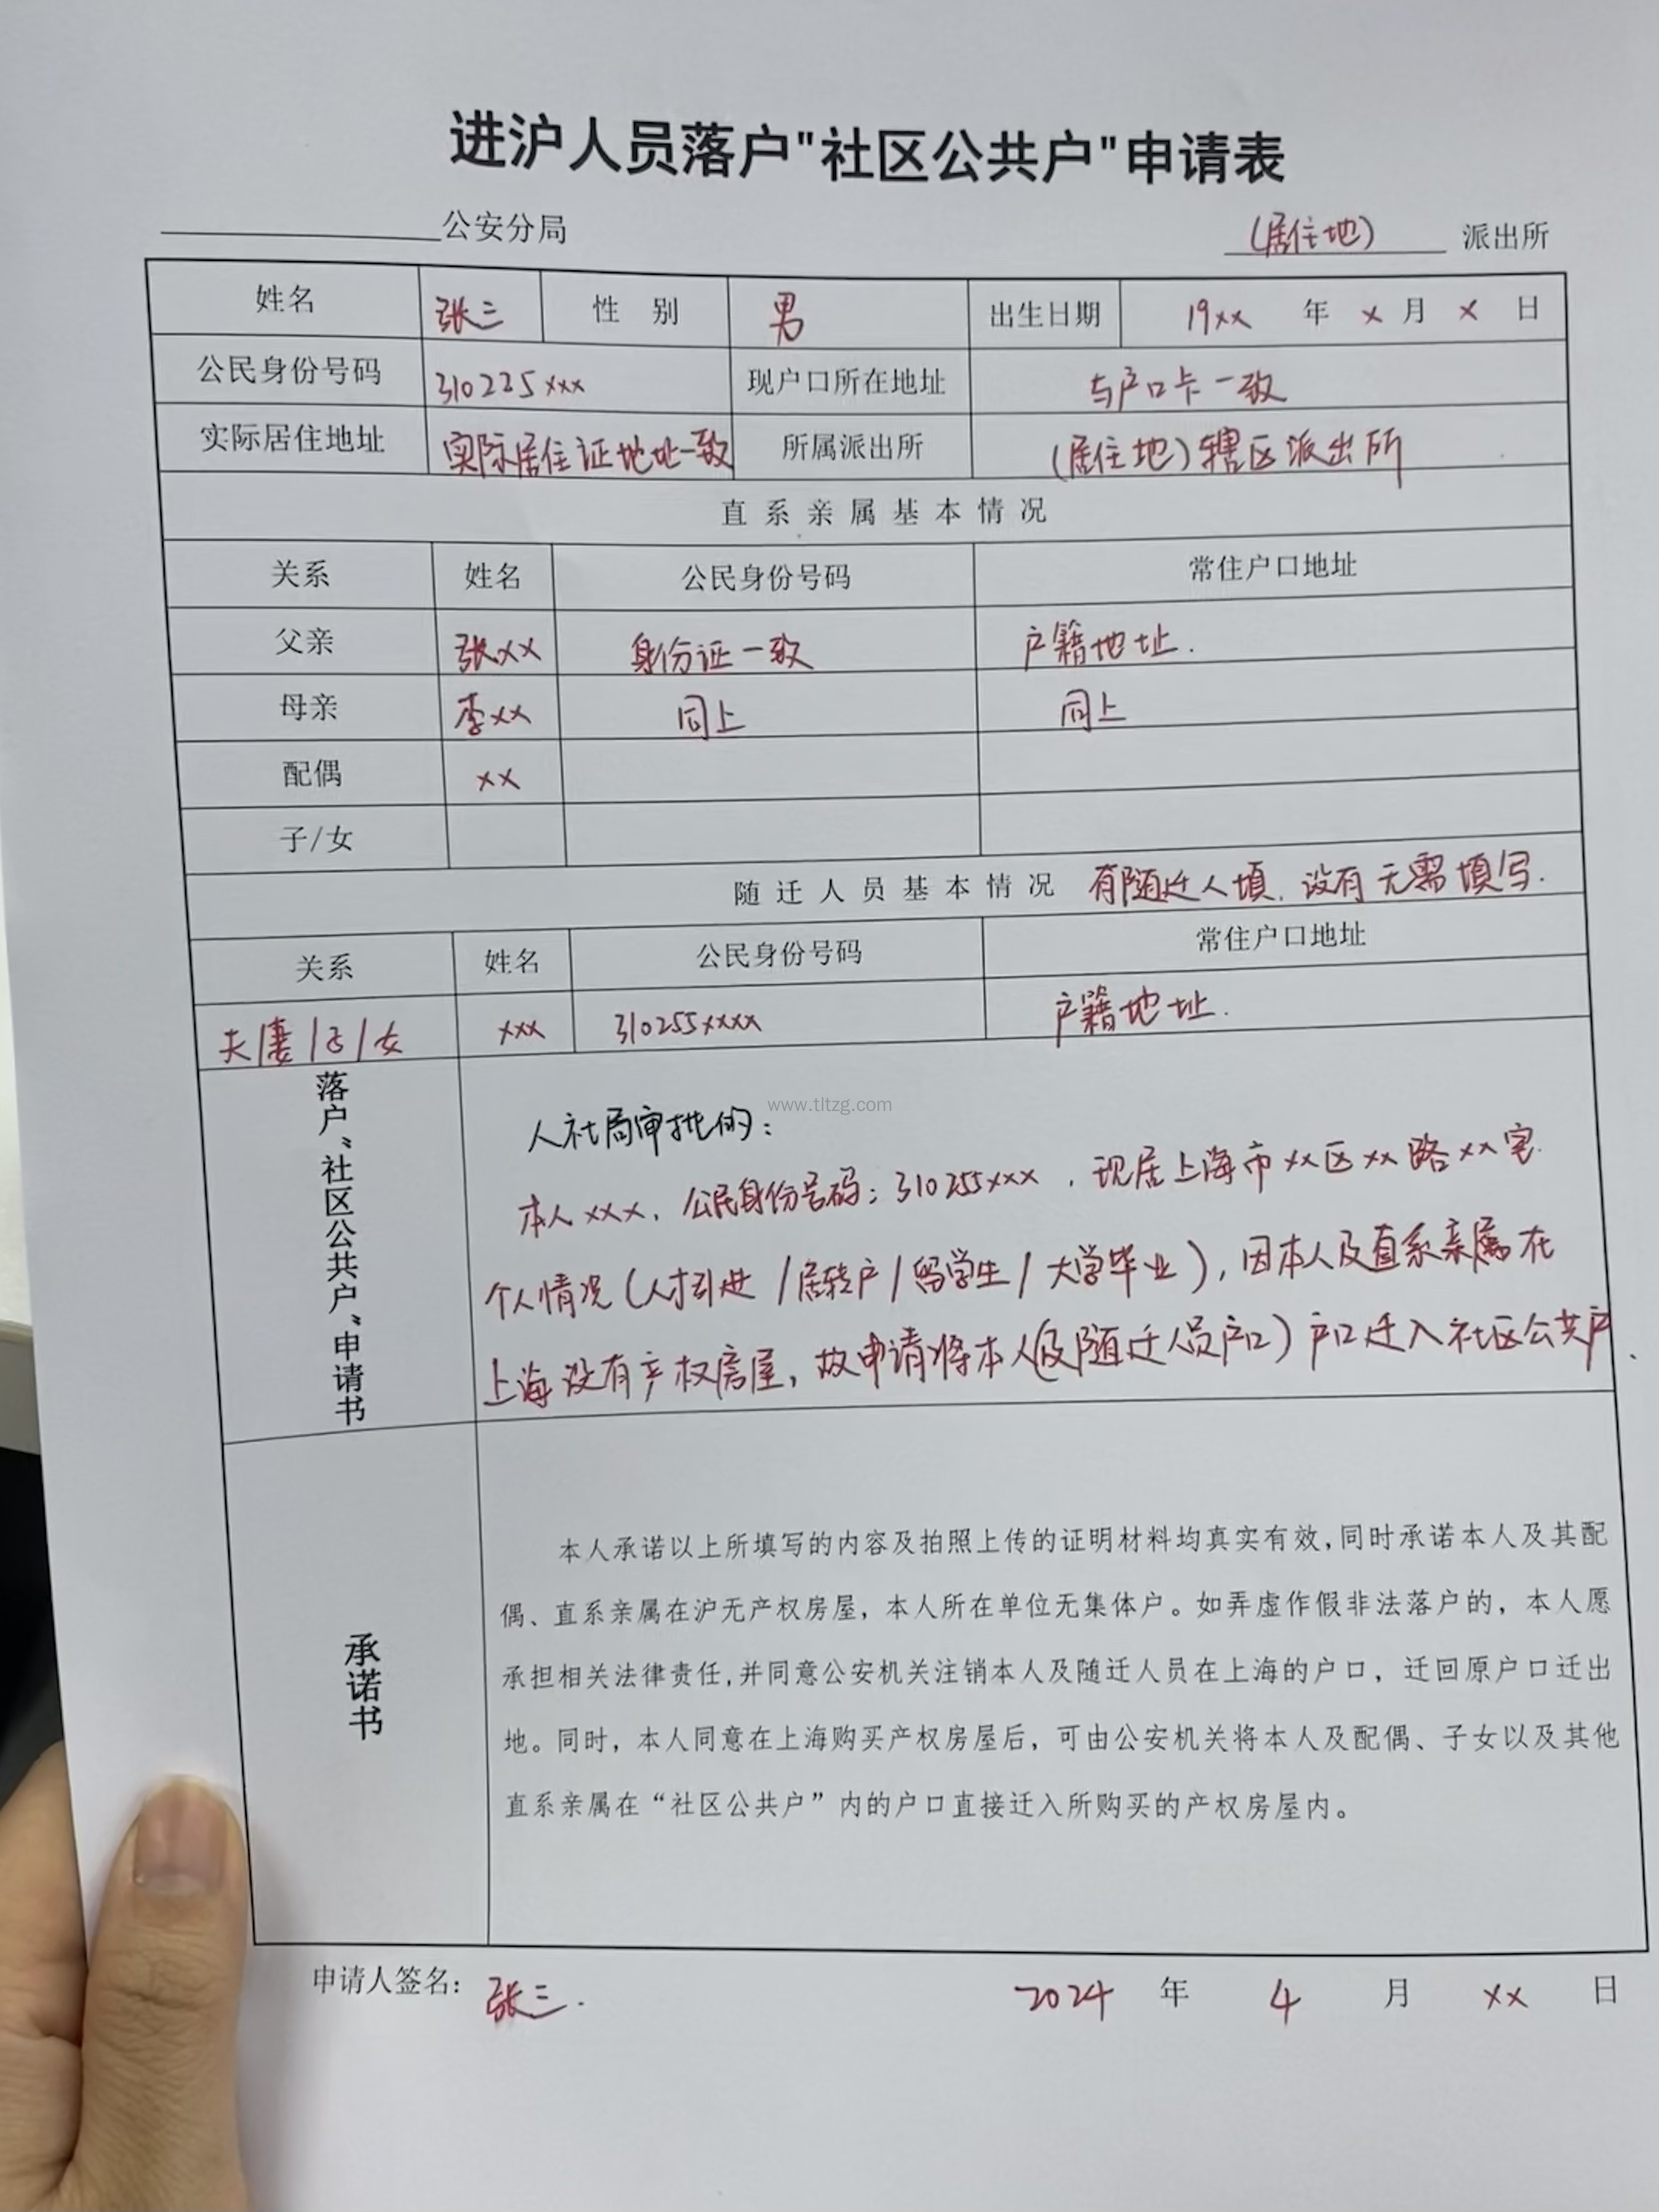 进沪人员落户"社区公共户"申请表
公安分局 (居住地) 派出所
姓名 张三 性 别 男 出生日期 19xx 年 x 月 x 日
公民身份号码 310225xxx 现户口所在地址 与户口卡一致
实际居住地址 实际居住证地址一致 所属派出所 (居住地)辖区派出所
直系亲属基本情况
关系 姓名 公民身份号码 常住户口地址
父亲 张xx 身份证一致 户籍地址.
母亲 李xx 同上 同上
配偶 xx
子/女
随迁人员基本情况 有随迁人填.没有无需填写.
关系 姓名 公民身份号码 常住户口地址
夫/妻/子/女 xxx 310255xxxx 户籍地址.
落户“社区公共户”申请书
www.tltzg.com
人社局审批的:
本人xxx,公民身份号码:310255xxx,现居上海市xx区xx路xx室.
个人情况(人才引进/居转户/留学生/大学毕业),因本人及直系亲属在
上海没有产权房屋,故申请将本人(及随迁人员户口)户口迁入社区公共户.
承诺书
本人承诺以上所填写的内容及拍照上传的证明材料均真实有效,同时承诺本人及其配
偶、直系亲属在沪无产权房屋，本人所在单位无集体户。如弄虚作假非法落户的，本人愿
承担相关法律责任,并同意公安机关注销本人及随迁人员在上海的户口，迁回原户口迁出
地。同时，本人同意在上海购买产权房屋后，可由公安机关将本人及配偶、子女以及其他
直系亲属在“社区公共户”内的户口直接迁入所购买的产权房屋内。
申请人签名：张三. 2024 年 4 月 xx 日